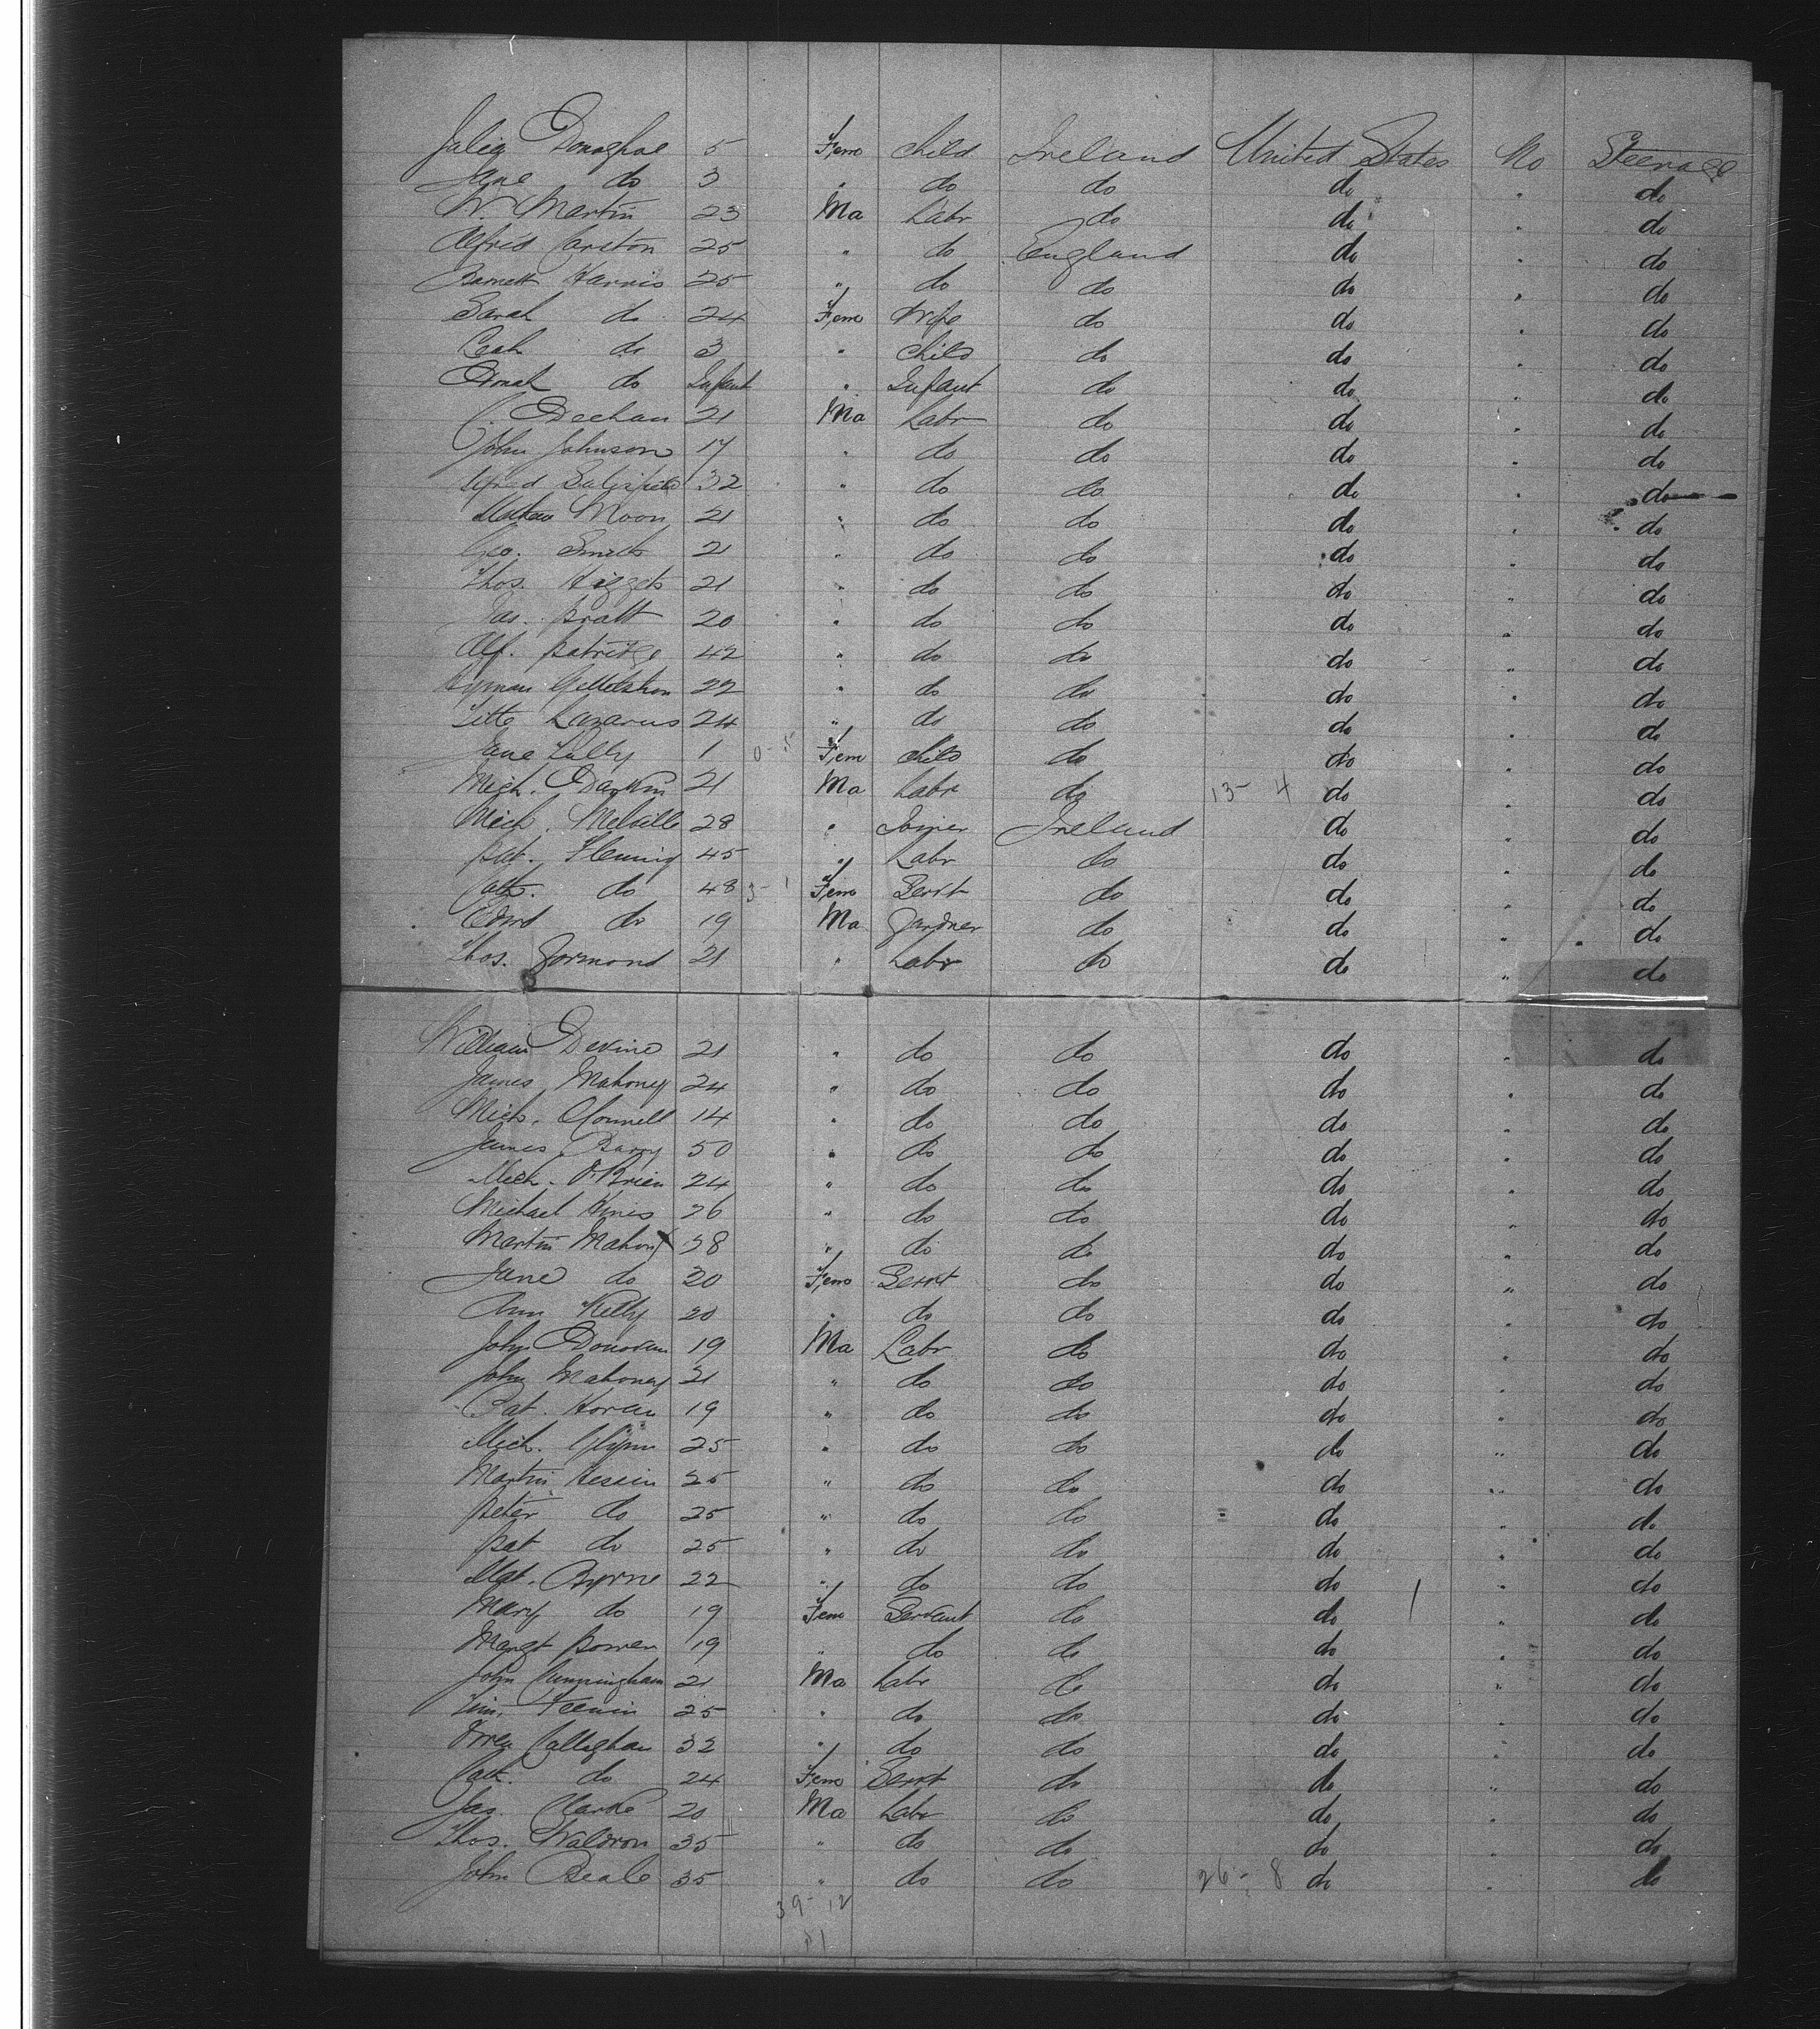 Julia Donaghoe 5 Fem Child Ireland United States No Steerage
Jane do 3 " do do do " do
W. Martin 23 Ma Labr do do " do
Alfred Carston 25 " do England do " do
Barnett Harris 25 " do do do " do
Sarah do 24 Fem Wife do do " do
Leah do 3 " Child do do " do
do Infant " Infant do do " do
C. Deehan 21 Ma Labr do do " do
John Johnson 17 " do do do " do
Alfred 32 " do do do " do
Moon 21 " do do do " do
Geo. Smith 21 " do do do " do
Thos. 21 " do do do " do
Jas. Pratt 20 " do do do " do
Alf. Patridge 42 " do do do " do
Hyman 22 " do do do " do
Lazarus 24 " do do do " do
Jane Lally 1 0-5 Fem Child do do " do
Mich. Darkin 21 Ma Labr do 13-4 do " do
Mich. Melville 28 " Joiner Ireland do " do
Pat. Fleming 45 " Labr do do " do
Cath. do 48 3-1 Fem Servt do do " do
Edwd do 19 Ma Gardner do do " do
Thos. Gormond 21 " Labr do do " do
William Devine 21 " do do do " do
James Mahoney 24 " do do do " do
Mich. OConnell 14 " do do do " do
James Barry 50 " do do do " do
Mich. O'Brien 24 " do do do " do
Michael Hines 26 " do do do " do
Martin Mahony 38 " do do do " do
Jane do 20 Fem Servt do do " do
Ann Kelly 20 " do do do " do
John Donovan 19 Ma Labr do do " do
John Mahoney 21 " do do do " do
Pat. Horan 19 " do do do " do
Mich. Glynn 25 " do do do " do
Martin Hessin 25 " do do do " do
Peter do 25 " do do do " do
Pat do 25 " do do do " do
Mat. Byrne 22 " do do do " do
Mary do 19 Fem Servant do do " do
Margt Bowen 19 " do do do " do
John Cunningham 21 Ma Labr do do " do
Tim. 25 " do do do " do
Callaghan 32 " do do do " do
Cath. do 24 Fem Servt do do " do
Jas. Clarke 20 Ma Labr do do " do
Thos. Waldron 35 " do do do " do
John Beale 35 " do do 26-8 do " do
39-12